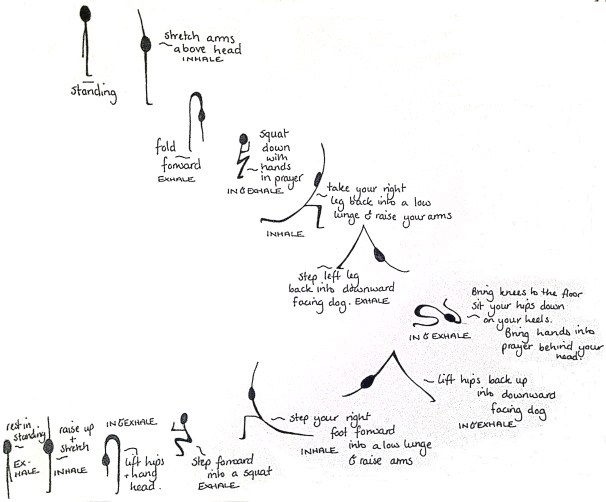 standing
stretch arms
above head
INHALE
fold
forward
EXHALE
squat
down
with
hands
in prayer
IN & EXHALE
take your right
leg back into a low
lunge & raise your arms
INHALE
step left leg
back into downward
facing dog. EXHALE
Bring knees to the floor
sit your hips down
on your heels.
Bring hands into
prayer behind your
head.
IN & EXHALE
lift hips back up
into downward
facing dog
IN & EXHALE
step your right
foot forward
into a low lunge
& raise arms
INHALE
step forward
into a squat
EXHALE
IN & EXHALE
lift hips
+ hang
head.
raise up
+
stretch
INHALE
rest in
standing
EX-
HALE